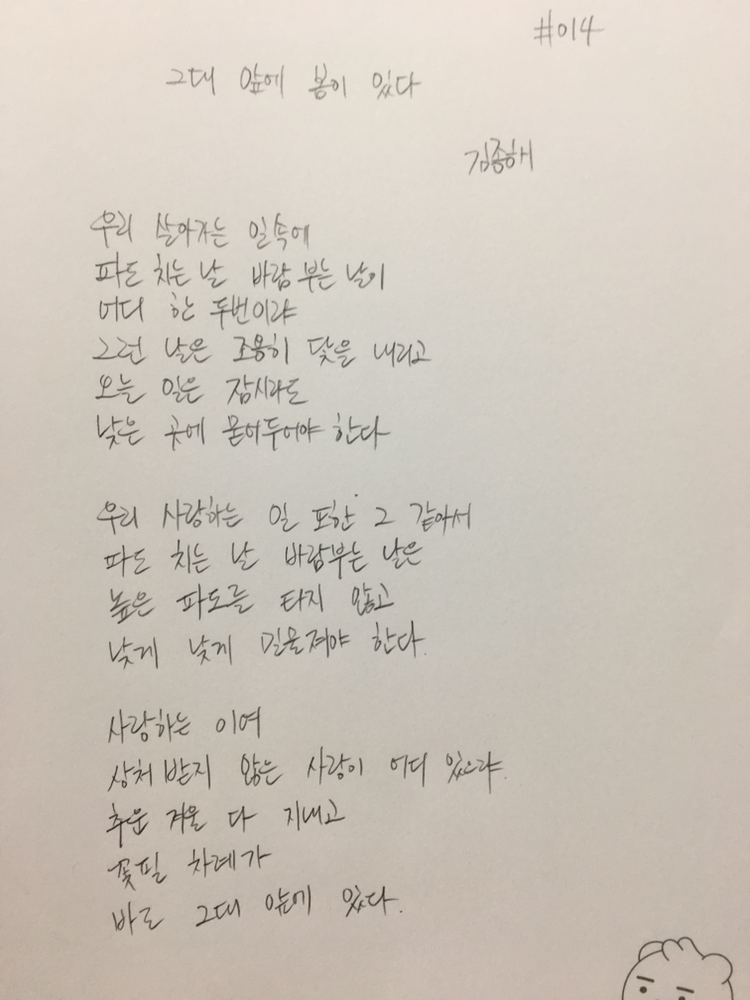 #014
그대 앞에 봄이 있다
김종해
우리 살아가는 일속에
파도 치는 날 바람 부는 날이
어디 한 두번이랴
그런 날은 조용히 닻을 내리고
오늘 일은 잠시라도
낮은 곳에 묻어두어야 한다
우리 사랑하는 일 또한 그 같아서
파도 치는 날 바람부는 날은
높은 파도를 타지 않고
낮게 낮게 밀물져야 한다.
사랑하는 이여
상처 받지 않은 사랑이 어디 있으랴.
추운 겨울 다 지내고
꽃필 차례가
바로 그대 앞에 있다.